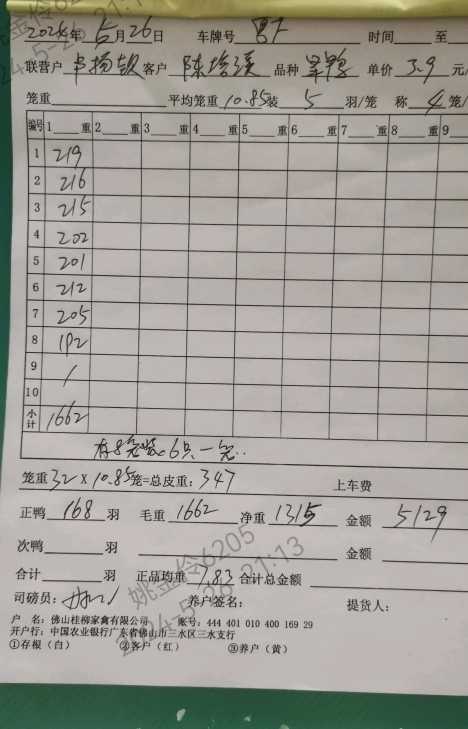 2024年5月26日 车牌号 男下 时间 至
联营户 卢扬钦 客户 陈培溪 品种 单价 3.9 元/
笼重 平均笼重 10.85 装 5 羽/笼 称 4 笼/
编号 1 重 2 重 3 重 4 重 5 重 6 重 7 重 8 重 9
1 219
2 216
3 215
4 202
5 201
6 212
7 205
8 192
9 /
10
小计 1662
有8笼装6只一笼..
笼重 32 X 10.85 笼=总皮重: 347 上车费
正鸭 168 羽 毛重 1662 净重 1315 金额 5129
次鸭 羽 金额
合计 羽 正品均重 7.83 合计总金额
司磅员: 养户签名: 提货人:
户 名: 佛山桂柳家禽有限公司 账号: 444 401 010 400 169 29
开户行: 中国农业银行广东省佛山市三水区三水支行
①存根(白) ②客户(红) ③养户(黄)
姚金伶6205
2024-5-26 21:13